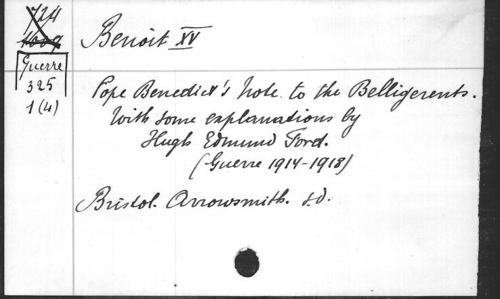 Benoit XV
Guerre
325
1(4)
Pope Benedict's Note to the Belligerents.
With some explanations by
Hugh Edmund Ford.
(Guerre 1914-1918)
Bristol. Arrowsmith. s.d.